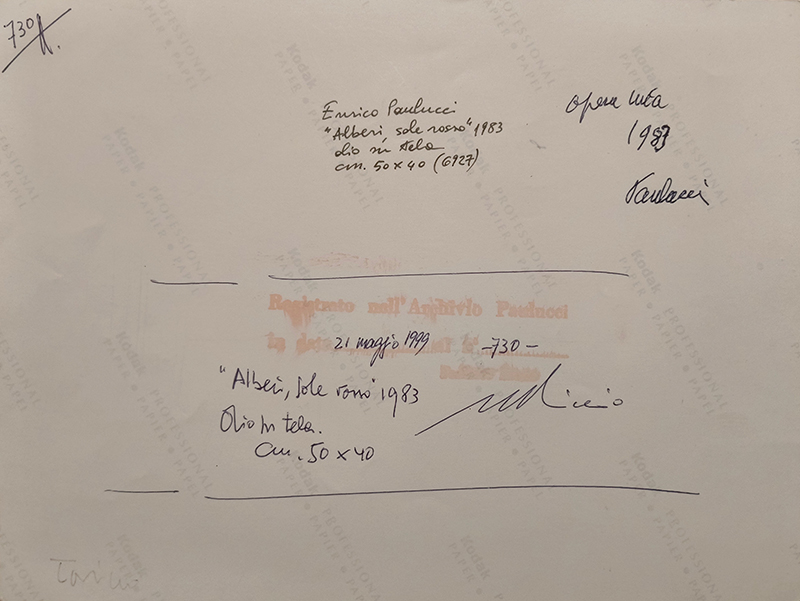 730
Enrico Paulucci
"Alberi, sole rosso" 1983
olio su tela
cm. 50 x 40 (6927)
opera mia
1983
Paulucci
Registrato nell'Archivio Paulucci
in data 21 maggio 1999 al n° -730-
"Alberi, sole rosso" 1983
Olio su tela.
cm. 50 x 40
Kodak
PROFESSIONAL
PAPER
PAPEL